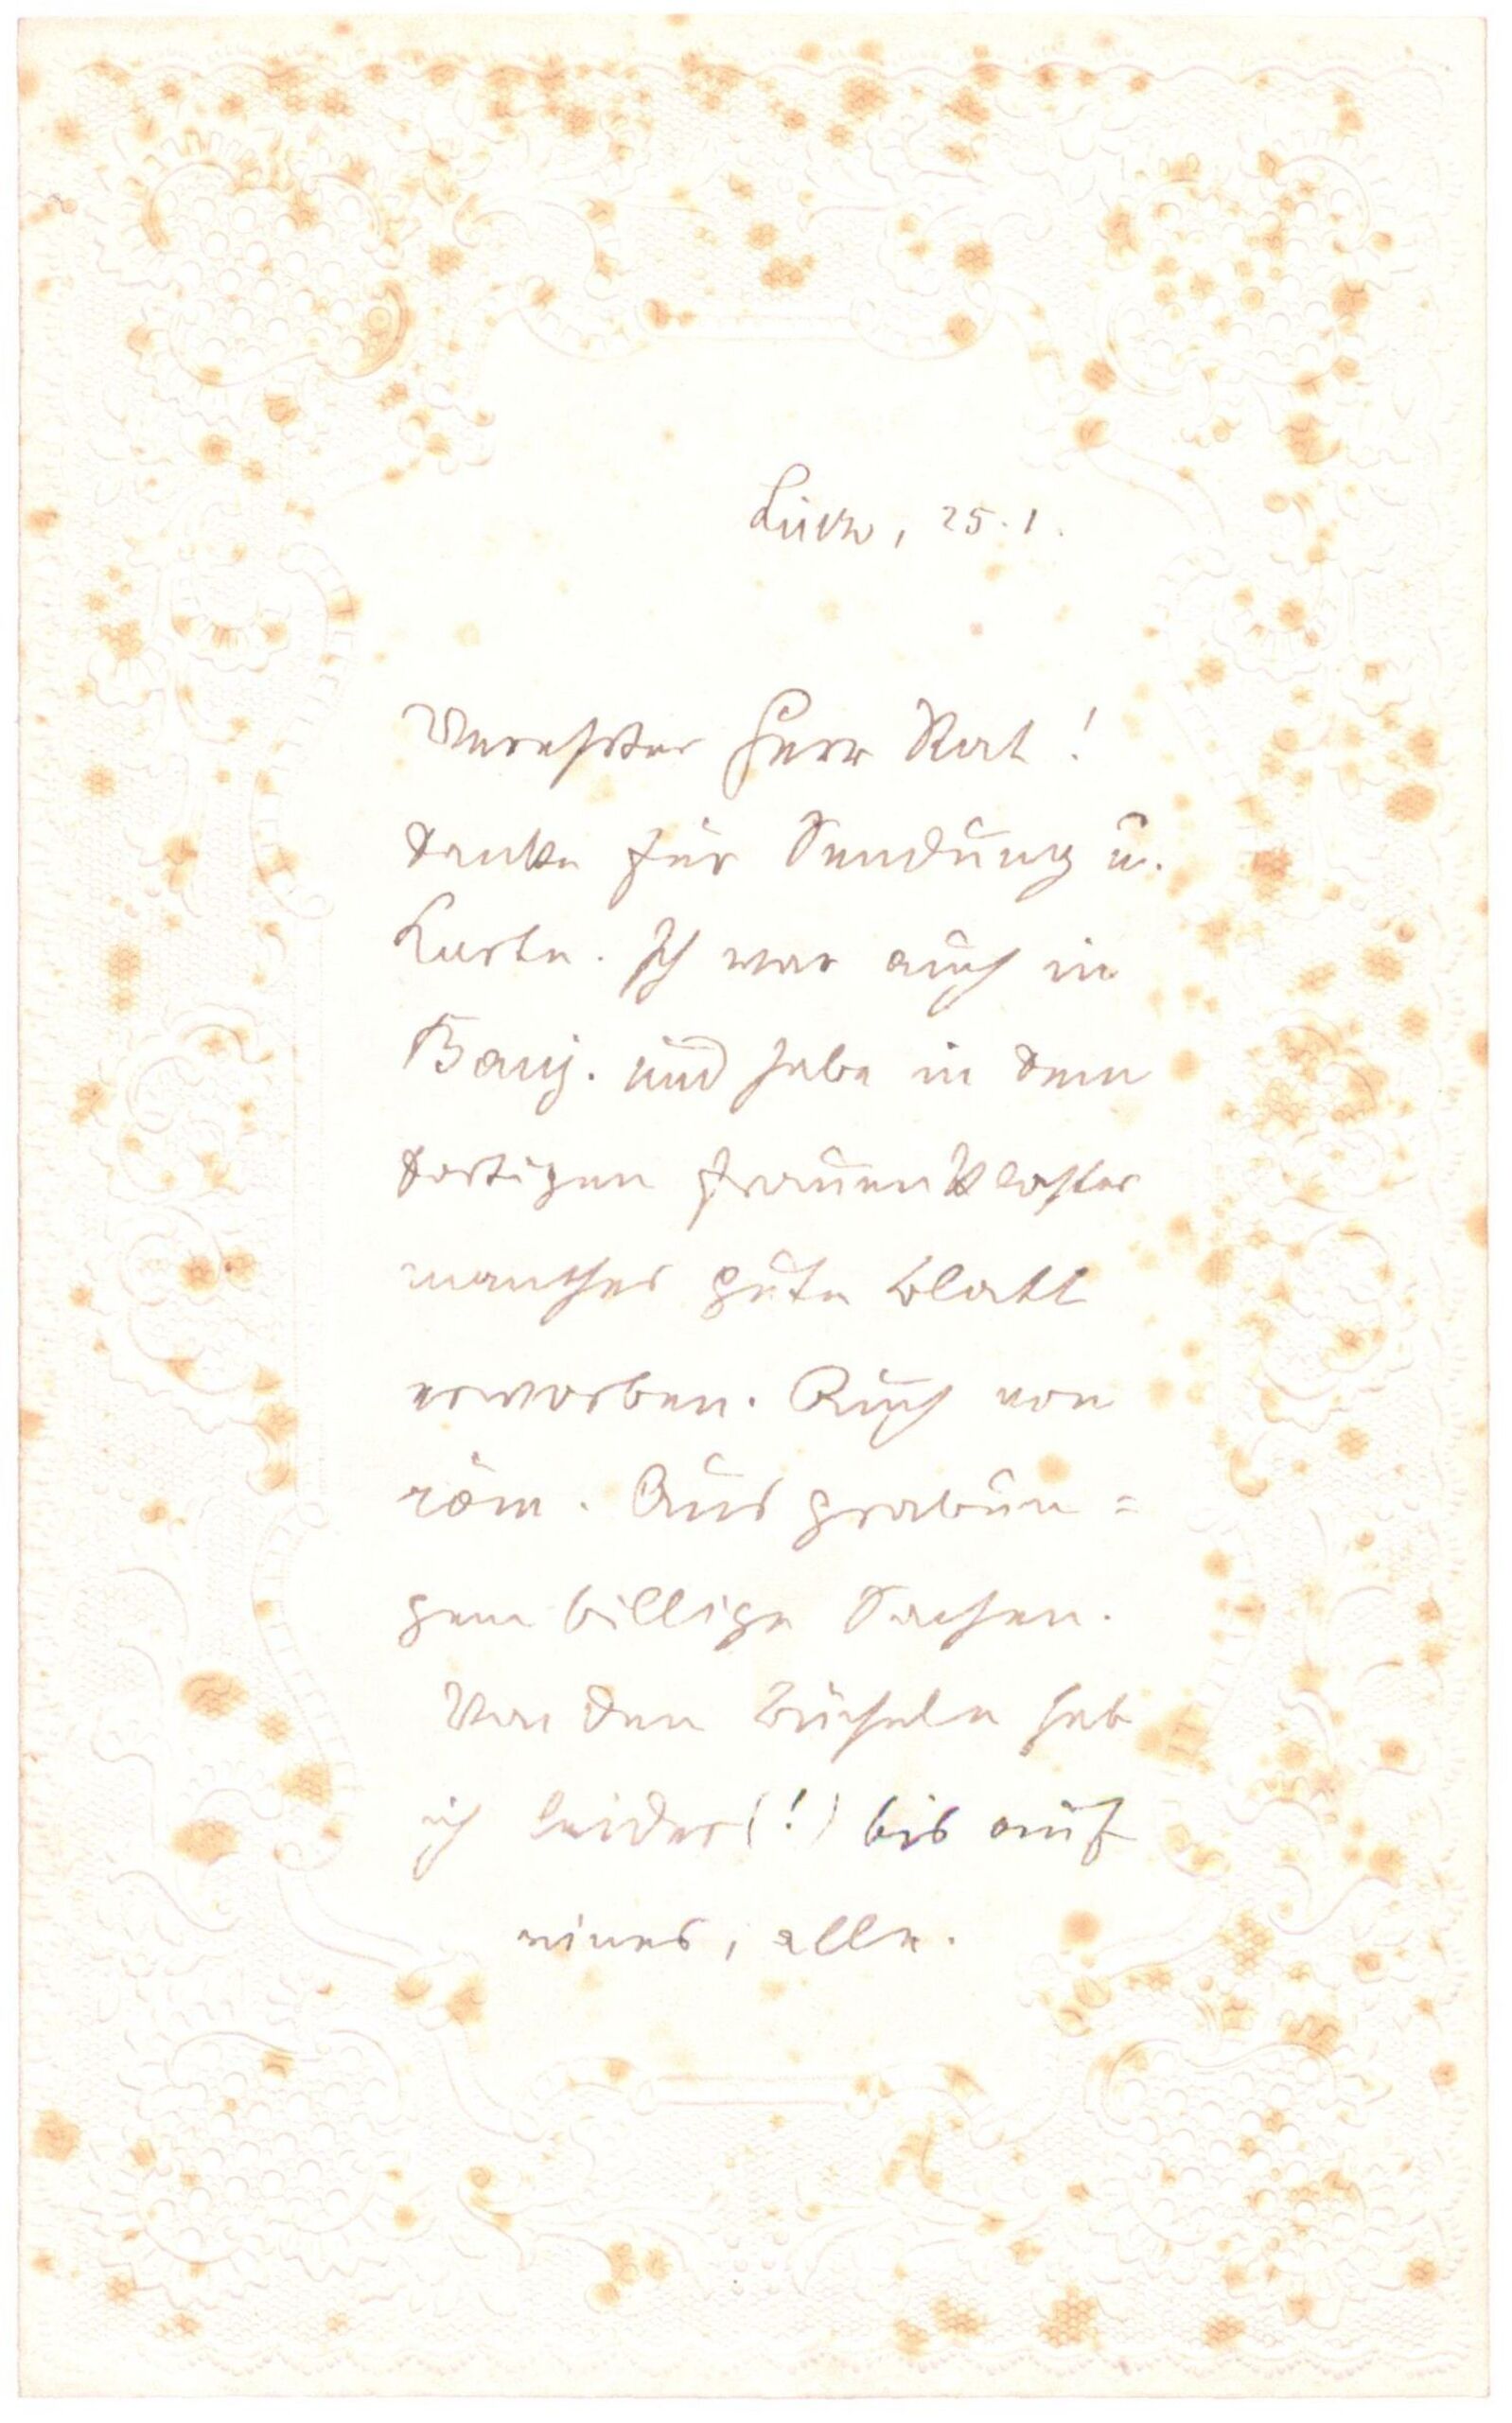 25.1.
Verehrter Herr Rat!
danke für Sendung u.
Karte. Ich war auch in
und habe in dem
dortigen Frauenkloster
manches gute Blatt
erworben. Auch von
röm. Ausgrabun=
gen billige Sachen.
Von den Bücheln hab
ich leider (!) bis auf
eines, alle.